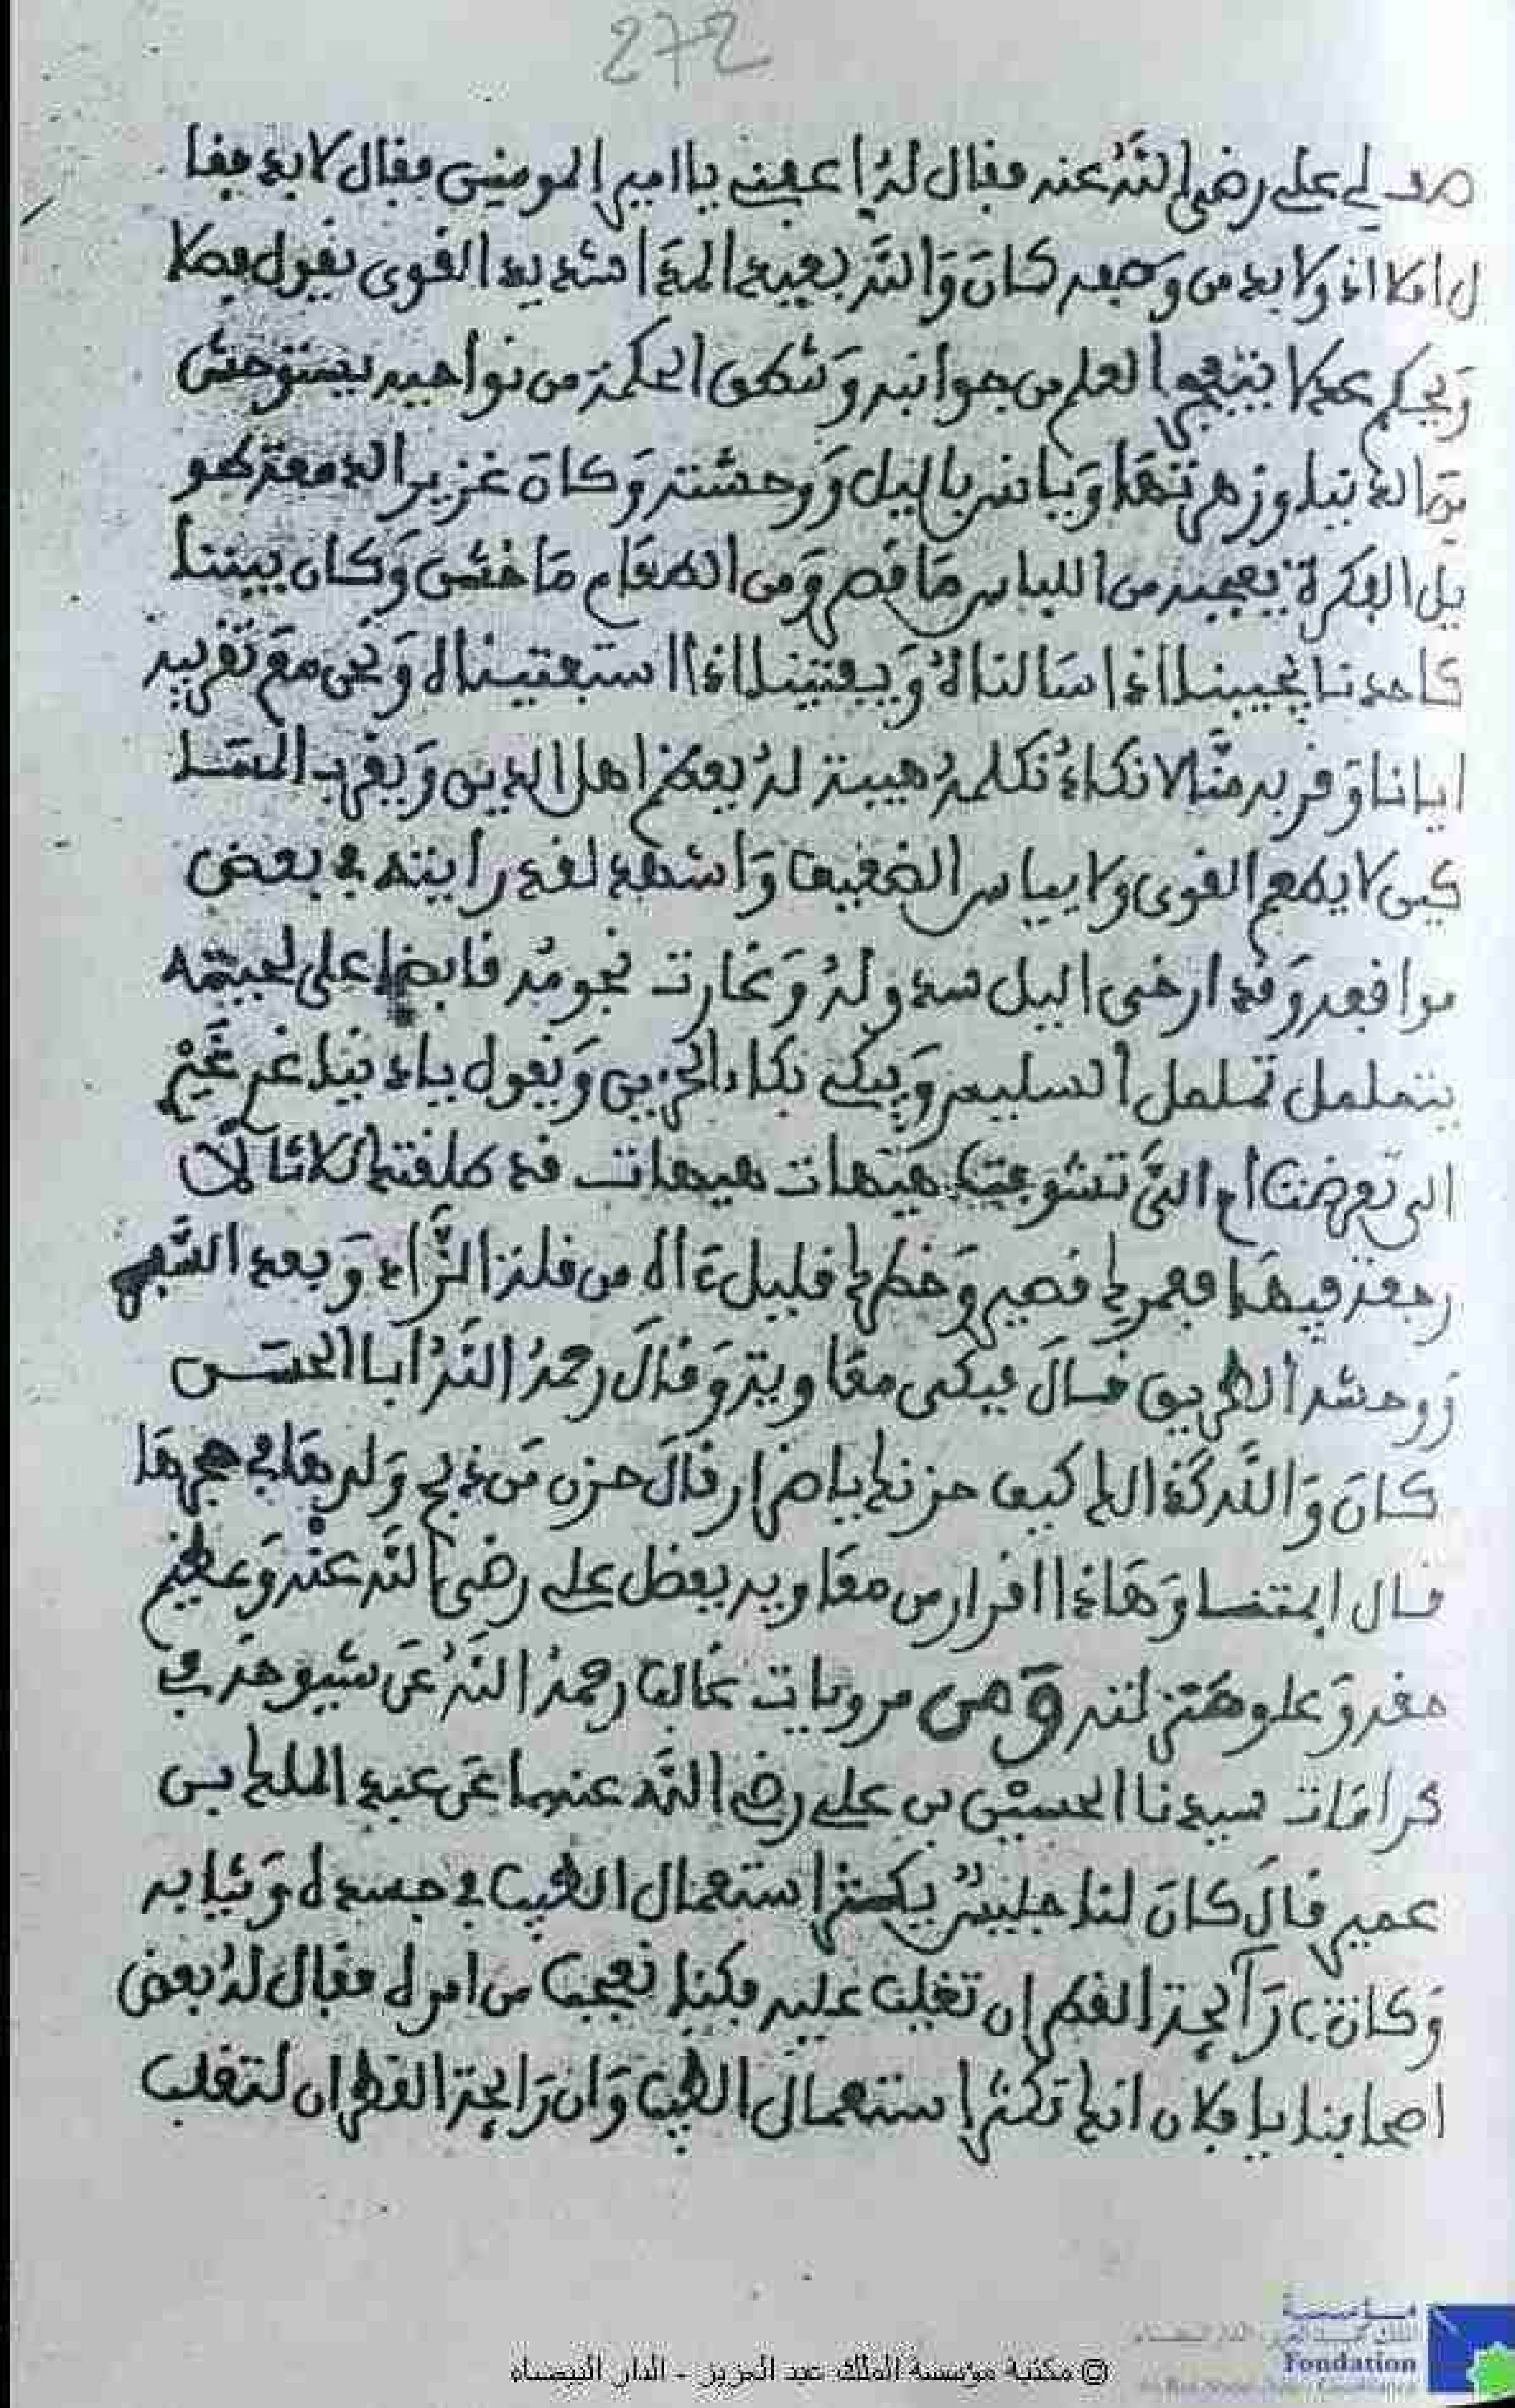 272
صف لي علي رضي الله عنه فقال له اعفني يا امير المومنين فقال لابد فقا
ل اما اذ ولابد من وصفه كان والله بعيد المدا شديد القوى يقول فصلا
ويحكم عدلا يتفجر العلم من جوانبه وتنطق الحكمة من نواحيه يستوحش
من الدنيا وزهرتها ويانس باليل ووحشته وكان غزير الدمعة طو
يل الفكرة يعجبه من اللباس ما قصر ومن الطعام ما خشن وكان بيننا
كاحدنا يجيبنا اذا سالناه ويفتينا اذا استفتيناه ونحن مع تقريبه
ايانا وقربه منا لا نكاد نكلمه هيبة له يعظم اهل الدين ويقرب المسا
كين لا يطمع القوى ولا يياس الضعيف واشهد لقد رايته في بعض
مواقفه وقد ارخى اليل سدوله وغارت نجومه قابضا على لحيته
يتململ تململ السليم ويبكي بكاء الحزين ويقول يا دنيا غر غيري
الي تعرضت ام الي تشوفت هيهات هيهات قد طلقتك ثلاثا لا
رجعة فيها فعمرك قصير وخطرك قليل ءاه من قلة الزاد وبعد السفر
ووحشه الطريق قال فبكى معاوية وقال رحم الله ابا الحسن
كان والله كذالك كيف حزنك يا ضرار قال حزن من ذبح ولدها في حجرها
قال وهاذا اقرار من معاويه بفضل علي رضي الله عنه وعظيم
حقه وعلو منزلته ومن مرويات رحمه الله عن شيوخه في
كرامات سيدنا الحسين بن علي رضي الله عنهما عن عبد الملك بن
عمير قال كان لنا جليس يكثر استعمال الطيب في جسده وثيابه
وكانت رآئحة القطران تغلب عليه فكنا نعجب من امره فقال له بعض
اصحابنا يا فلان انك تكثر استعمال الطيب وان رايحة القطران لتغلب
© مكتبة مؤسسة الملك عبد العزيز - الدار البيضاء
مؤسسة
Fondation